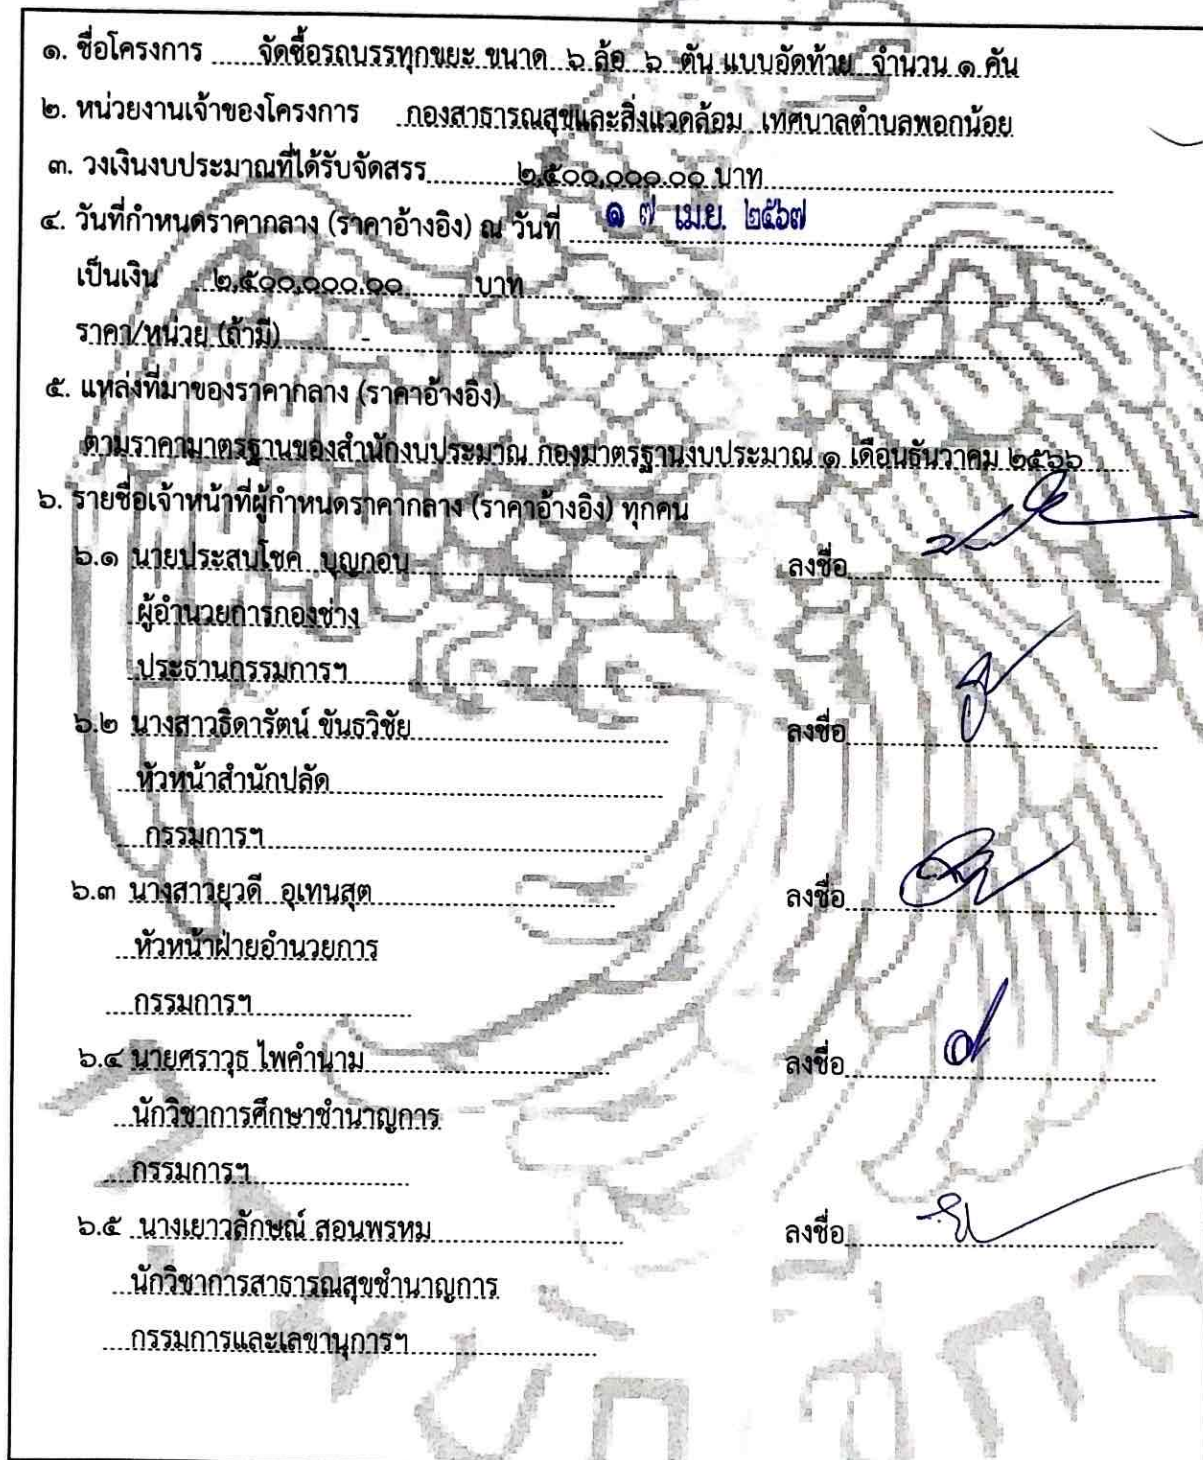 ๑. ชื่อโครงการ จัดซื้อรถบรรทุกขยะ ขนาด ๖ ล้อ ๖ ตัน แบบอัดท้าย จำนวน ๑ คัน
๒. หน่วยงานเจ้าของโครงการ กองสาธารณสุขและสิ่งแวดล้อม เทศบาลตำบลพอกน้อย
๓. วงเงินงบประมาณที่ได้รับจัดสรร ๒,๕๐๐,๐๐๐.๐๐ บาท
๔. วันที่กำหนดราคากลาง (ราคาอ้างอิง) ณ วันที่ ๑ ๗ เม.ย. ๒๕๖๗
เป็นเงิน ๒,๕๐๐,๐๐๐.๐๐ บาท
ราคา/หน่วย (ถ้ามี) -
๕. แหล่งที่มาของราคากลาง (ราคาอ้างอิง)
ตามราคามาตรฐานของสำนักงบประมาณ กองมาตรฐานงบประมาณ ๑ เดือนธันวาคม ๒๕๖๖
๖. รายชื่อเจ้าหน้าที่ผู้กำหนดราคากลาง (ราคาอ้างอิง) ทุกคน
๖.๑ นายประสบโชค บุญกอบ ลงชื่อ
ผู้อำนวยการกองช่าง
ประธานกรรมการฯ
๖.๒ นางสาวธิดารัตน์ ขันธวิชัย ลงชื่อ
หัวหน้าสำนักปลัด
กรรมการฯ
๖.๓ นางสาวยุวดี อุเทนสุต ลงชื่อ
หัวหน้าฝ่ายอำนวยการ
กรรมการฯ
๖.๔ นายศราวุธ ไพคำนาม ลงชื่อ
นักวิชาการศึกษาชำนาญการ
กรรมการฯ
๖.๕ นางเยาวลักษณ์ สอนพรหม ลงชื่อ
นักวิชาการสาธารณสุขชำนาญการ
กรรมการและเลขานุการฯ